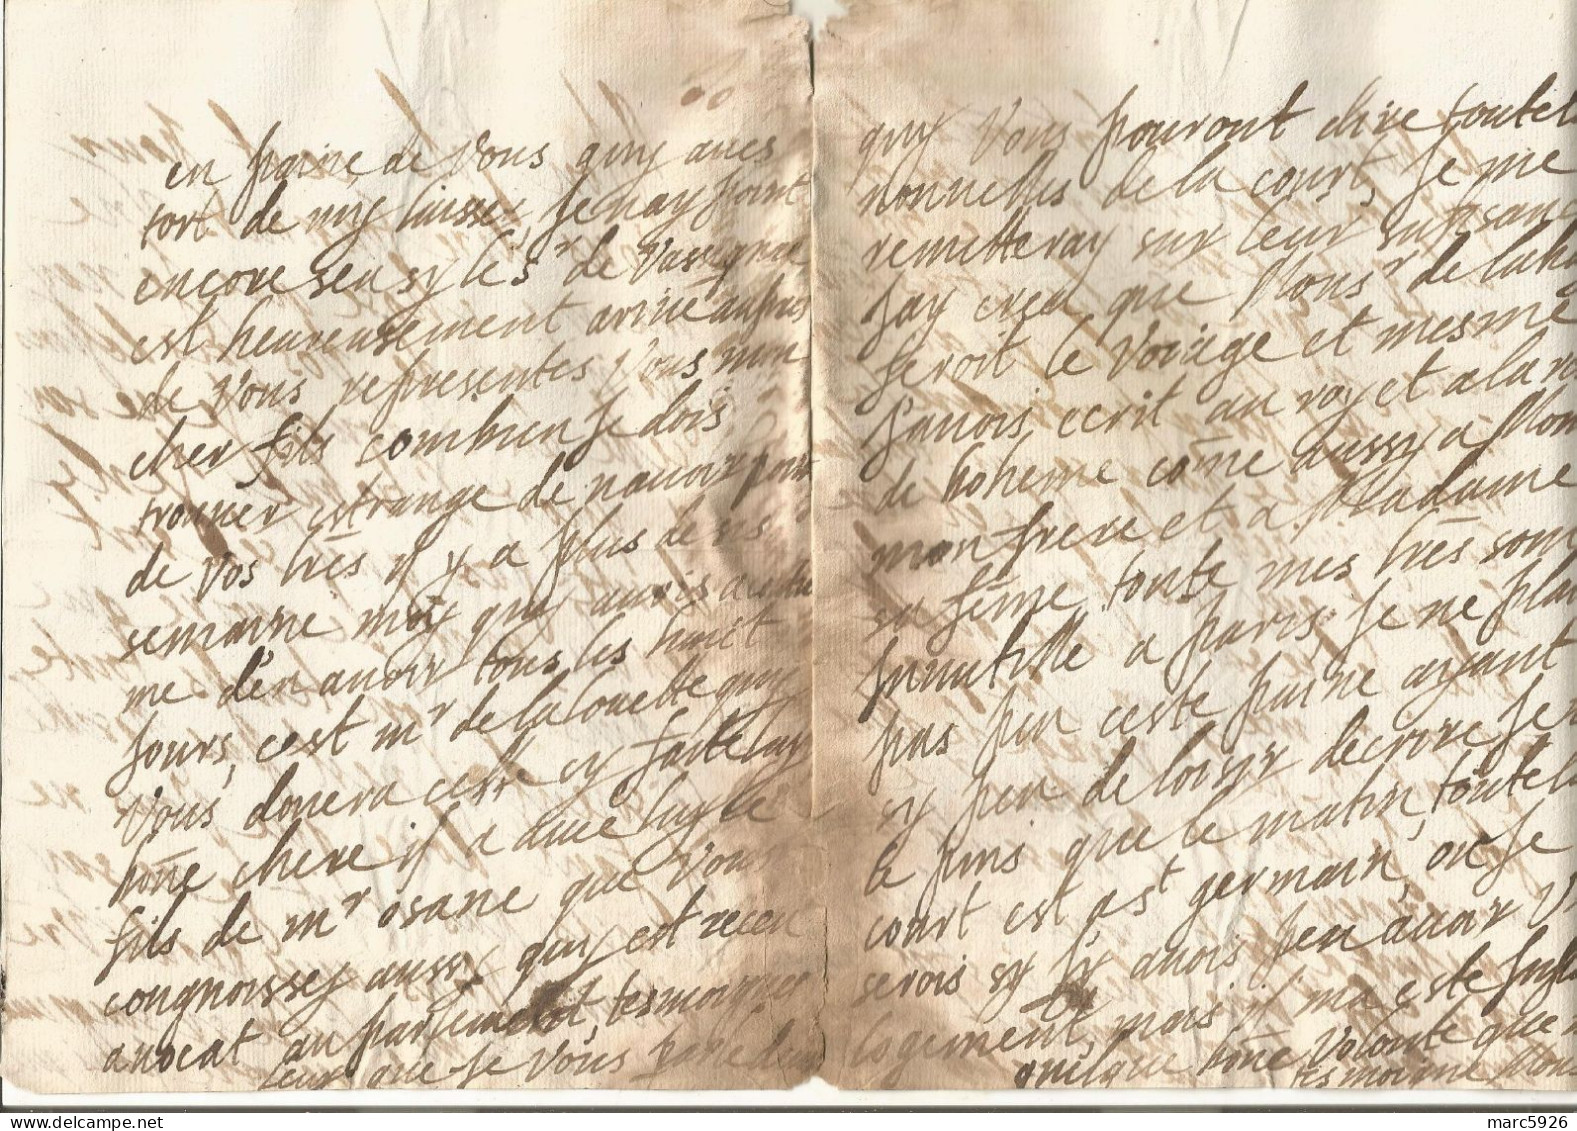 en paine de Vous quy aues
tort de my laisser, Je nay point
encore seu sy le sr de Vassignac
est heureusement arriué aupres
de Vous representes Vous mon
cher fils combien Je dois
trouuer estrange de nauoir point
de Vos lrēs il y a plus de
semaine moy quy auois
me d'en auoir tous les huit
Jours, cest mr de la louette quy
Vous donera ceste cy faite luy
bōne chere il a auec luy le
fils de mr osane que Vous
congnoissey aussy quy est receu
auocat au parlement, tesmoigner
leur que Je Vous
quy Vous pouront dire toutes
nouuelles de la court, Je me
remetteray sur leur
Jay creu que Monsr de la
feroit le Voiage et mesme
J'auois ecrit au roy et a la
de boheme cōme aussy a
mon frere et a Madame
sa fēme toute mes lrēs sont
Jnnutille a paris, Je ne plains
pas peu ceste paine ayant
sy peu de loisir decrire Je
le puis que le matin, toute la
court est a st germain, ou Je
serois sy J'y auois peu auoir Vn
logement, mais il ma este
quelque bōne Volonte que
tesmoigne
marc5926